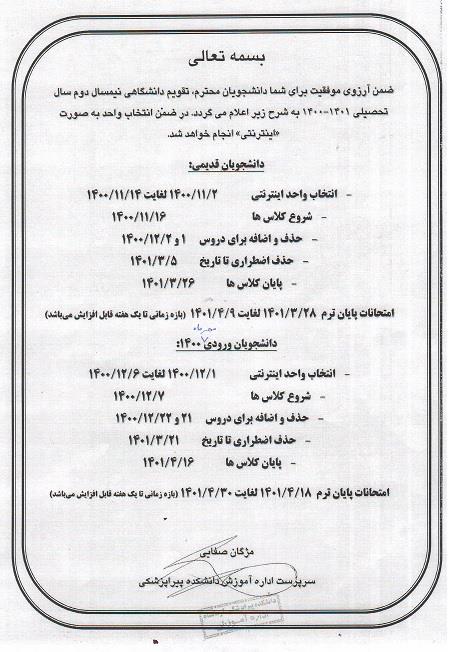 بسمه تعالی
ضمن آرزوی موفقیت برای شما دانشجویان محترم، تقویم دانشگاهی نیمسال دوم سال
تحصیلی ۱۴۰۱-۱۴۰۰ به شرح زیر اعلام می گردد. در ضمن انتخاب واحد به صورت
«اینترنتی» انجام خواهد شد.
دانشجویان قدیمی:
- انتخاب واحد اینترنتی ۱۴۰۰/۱۱/۲ لغایت ۱۴۰۰/۱۱/۱۴
- شروع کلاس ها ۱۴۰۰/۱۱/۱۶
- حذف و اضافه برای دروس ۱ و ۱۴۰۰/۱۲/۲
- حذف اضطراری تا تاریخ ۱۴۰۱/۳/۵
- پایان کلاس ها ۱۴۰۱/۳/۲۶
امتحانات پایان ترم ۱۴۰۱/۳/۲۸ لغایت ۱۴۰۱/۴/۹ (بازه زمانی تا یک هفته قابل افزایش می‌باشد)
مهرماه
دانشجویان ورودی ۱۴۰۰:
- انتخاب واحد اینترنتی ۱۴۰۰/۱۲/۱ لغایت ۱۴۰۰/۱۲/۶
- شروع کلاس ها ۱۴۰۰/۱۲/۷
- حذف و اضافه برای دروس ۲۱ و ۱۴۰۰/۱۲/۲۲
- حذف اضطراری تا تاریخ ۱۴۰۱/۳/۲۱
- پایان کلاس ها ۱۴۰۱/۴/۱۶
امتحانات پایان ترم ۱۴۰۱/۴/۱۸ لغایت ۱۴۰۱/۴/۳۰ (بازه زمانی تا یک هفته قابل افزایش می‌باشد)
مژگان صفایی
سرپرست اداره آموزش دانشکده پیراپزشکی
دانشکده پیراپزشکی
اداره آموزش